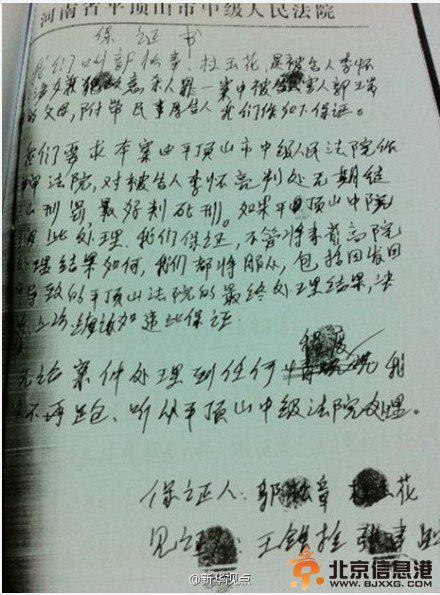 河南省平顶山市中级人民法院
保证书
我们叫郭松章、杜玉花，是被告人李怀
亮涉嫌犯故意杀人罪一案中被告害人郭
的父母，附带民事原告人，我们作如下保证。
我们要求本案由平顶山市中级人民法院作
审法院，对被告人李怀亮判处无期徒
刑，最好判死刑。如果平顶山中院
此处理，我们保证，不管将来省高院
处理结果如何，我们都将服从，包括因省
导致的平顶山法院的最终处理结果，决
上访，违此保证
程度
无论案件处理到任何我
不再上包、听从平顶山中级法院处理。
保证人：郭松章 花
见 王铁拴 张
@新华视点
北京信息港
WWW.BJXXG.COM